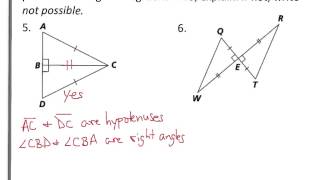 not possible.
5.
A
B
C
D
yes
6.
R
Q
E
W
T
AC & DC are hypotenuses
∠CBD & ∠CBA are right angles